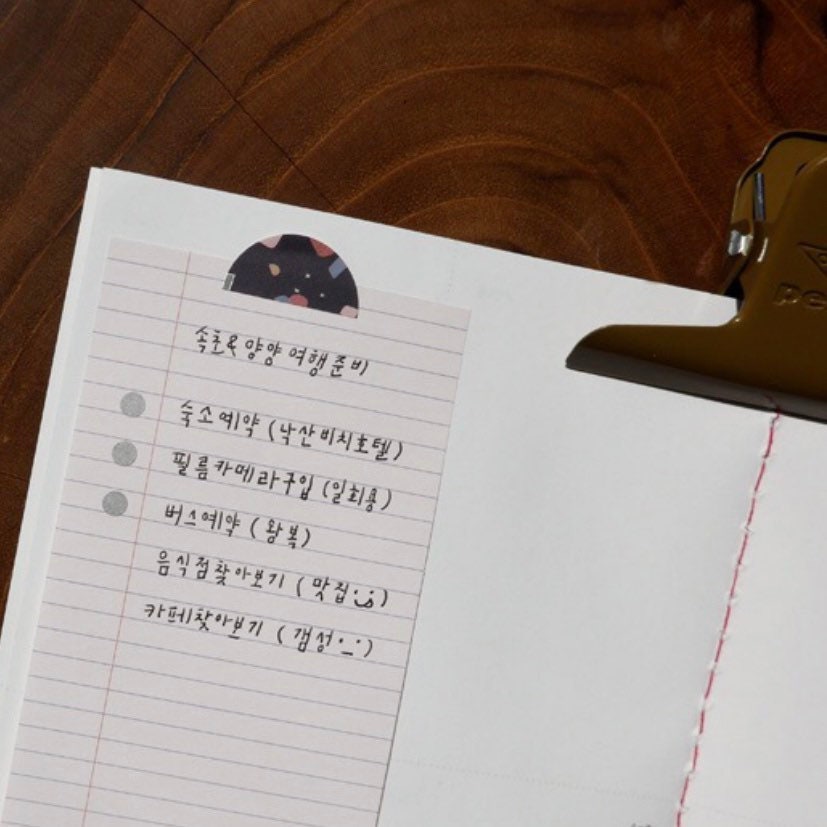 속초&양양 여행준비
숙소예약 (낙산비치호텔)
필름카메라구입 (일회용)
버스예약 (왕복)
음식점찾아보기 (맛집)
카페찾아보기 (갬성)
pe